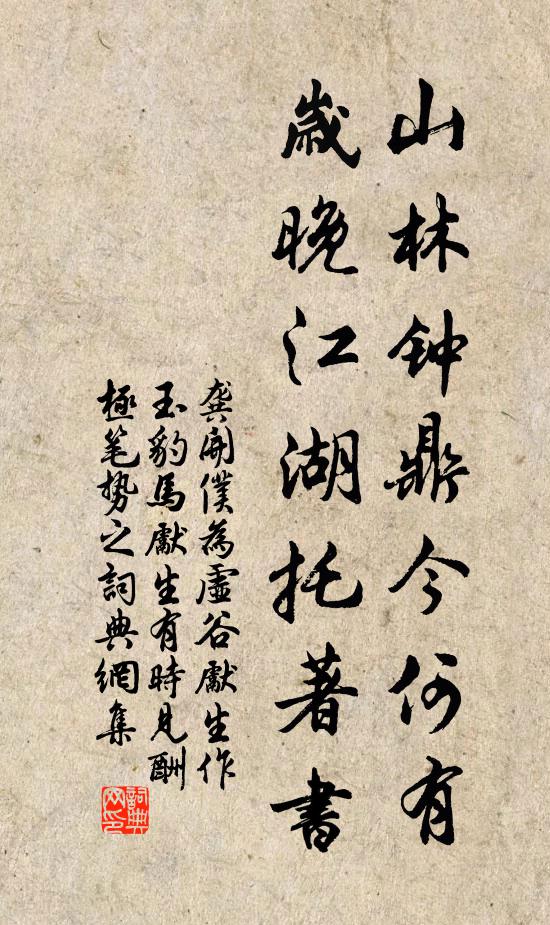 山林钟鼎今何有
歲晚江湖托著書
龔開僕為虛谷獻生作
玉豹馬獻生有時見酬
極笔势之詞典網集
詞典
网印